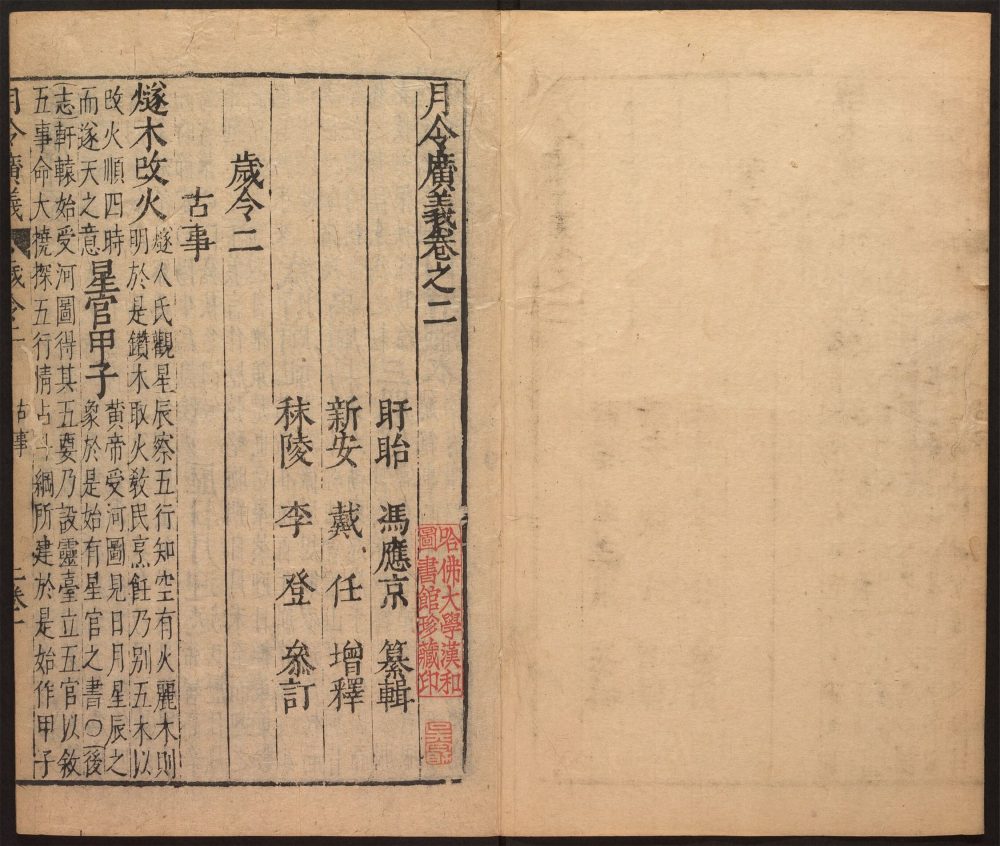 月令廣義卷之二
盱眙 馮應京 纂輯
新安 戴任 增釋
秣陵 李登 叅訂
歲令二
古事
燧木改火燧人氏觀星辰察五行知空有火麗木則
明於是鑽木取火教民烹飪乃別五木以
改火順四時
而遂天之意
星官甲子黃帝受河圖見日月星辰之
象於是始有星官之書○後
志軒轅始受河圖得其五要乃設靈臺立五官以敘
五事命大撓探五行情占斗綱所建於是始作甲子
月令廣義 歲令二 古事 二卷一
哈佛大學漢和
圖書館珍藏印